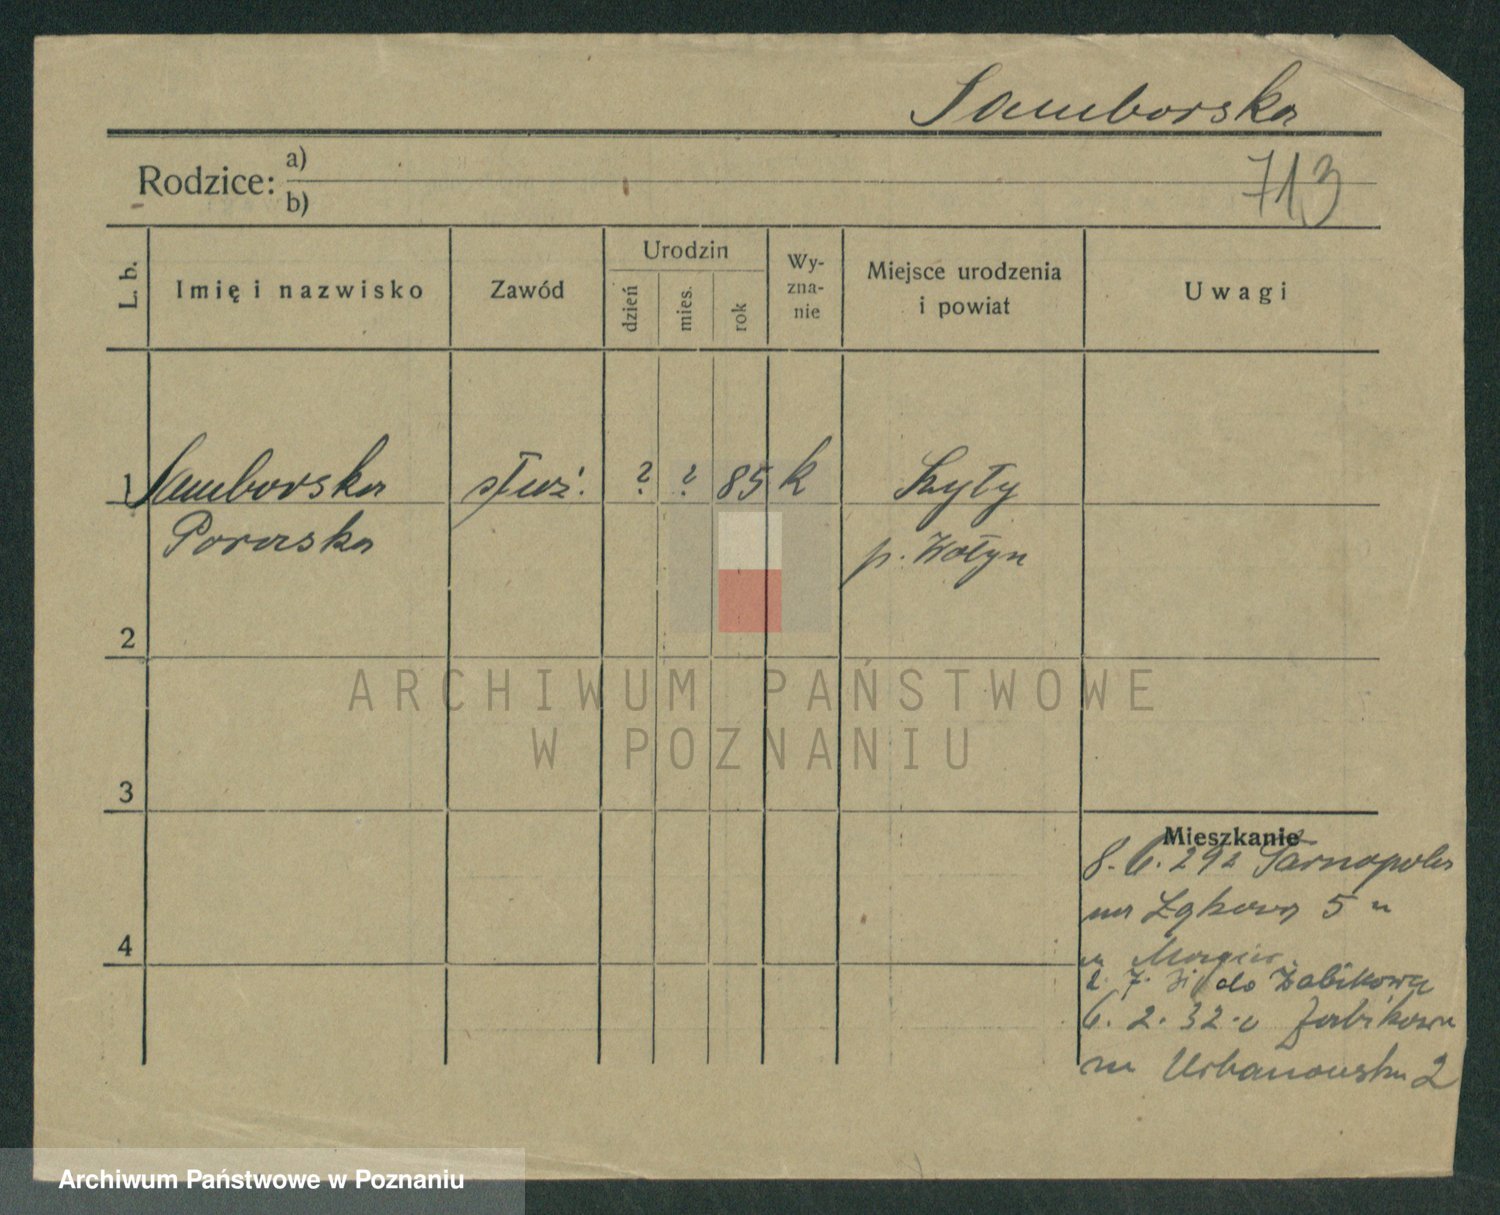 Samborska
713
Rodzice: a)
b)
L. b. Imię i nazwisko Zawód Urodzin dzień mies. rok Wy-zna-nie Miejsce urodzenia i powiat Uwagi
1 Samborska służ. ? ? 85 k Szyły
p. Wołyn
2
ARCHIWUM PAŃSTWOWE
W POZNANIU
3
Mieszkanie
8. 6. 29 z Tarnopola
na 5
4
2. 7. do Żabikowa
6. 2. 32. Żabikowa
na Urbanowska 2
Archiwum Państwowe w Poznaniu